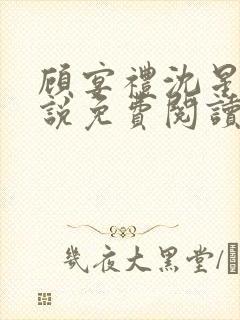 顾宴禮沈星
說免費閱讀
幾夜大黑堂/